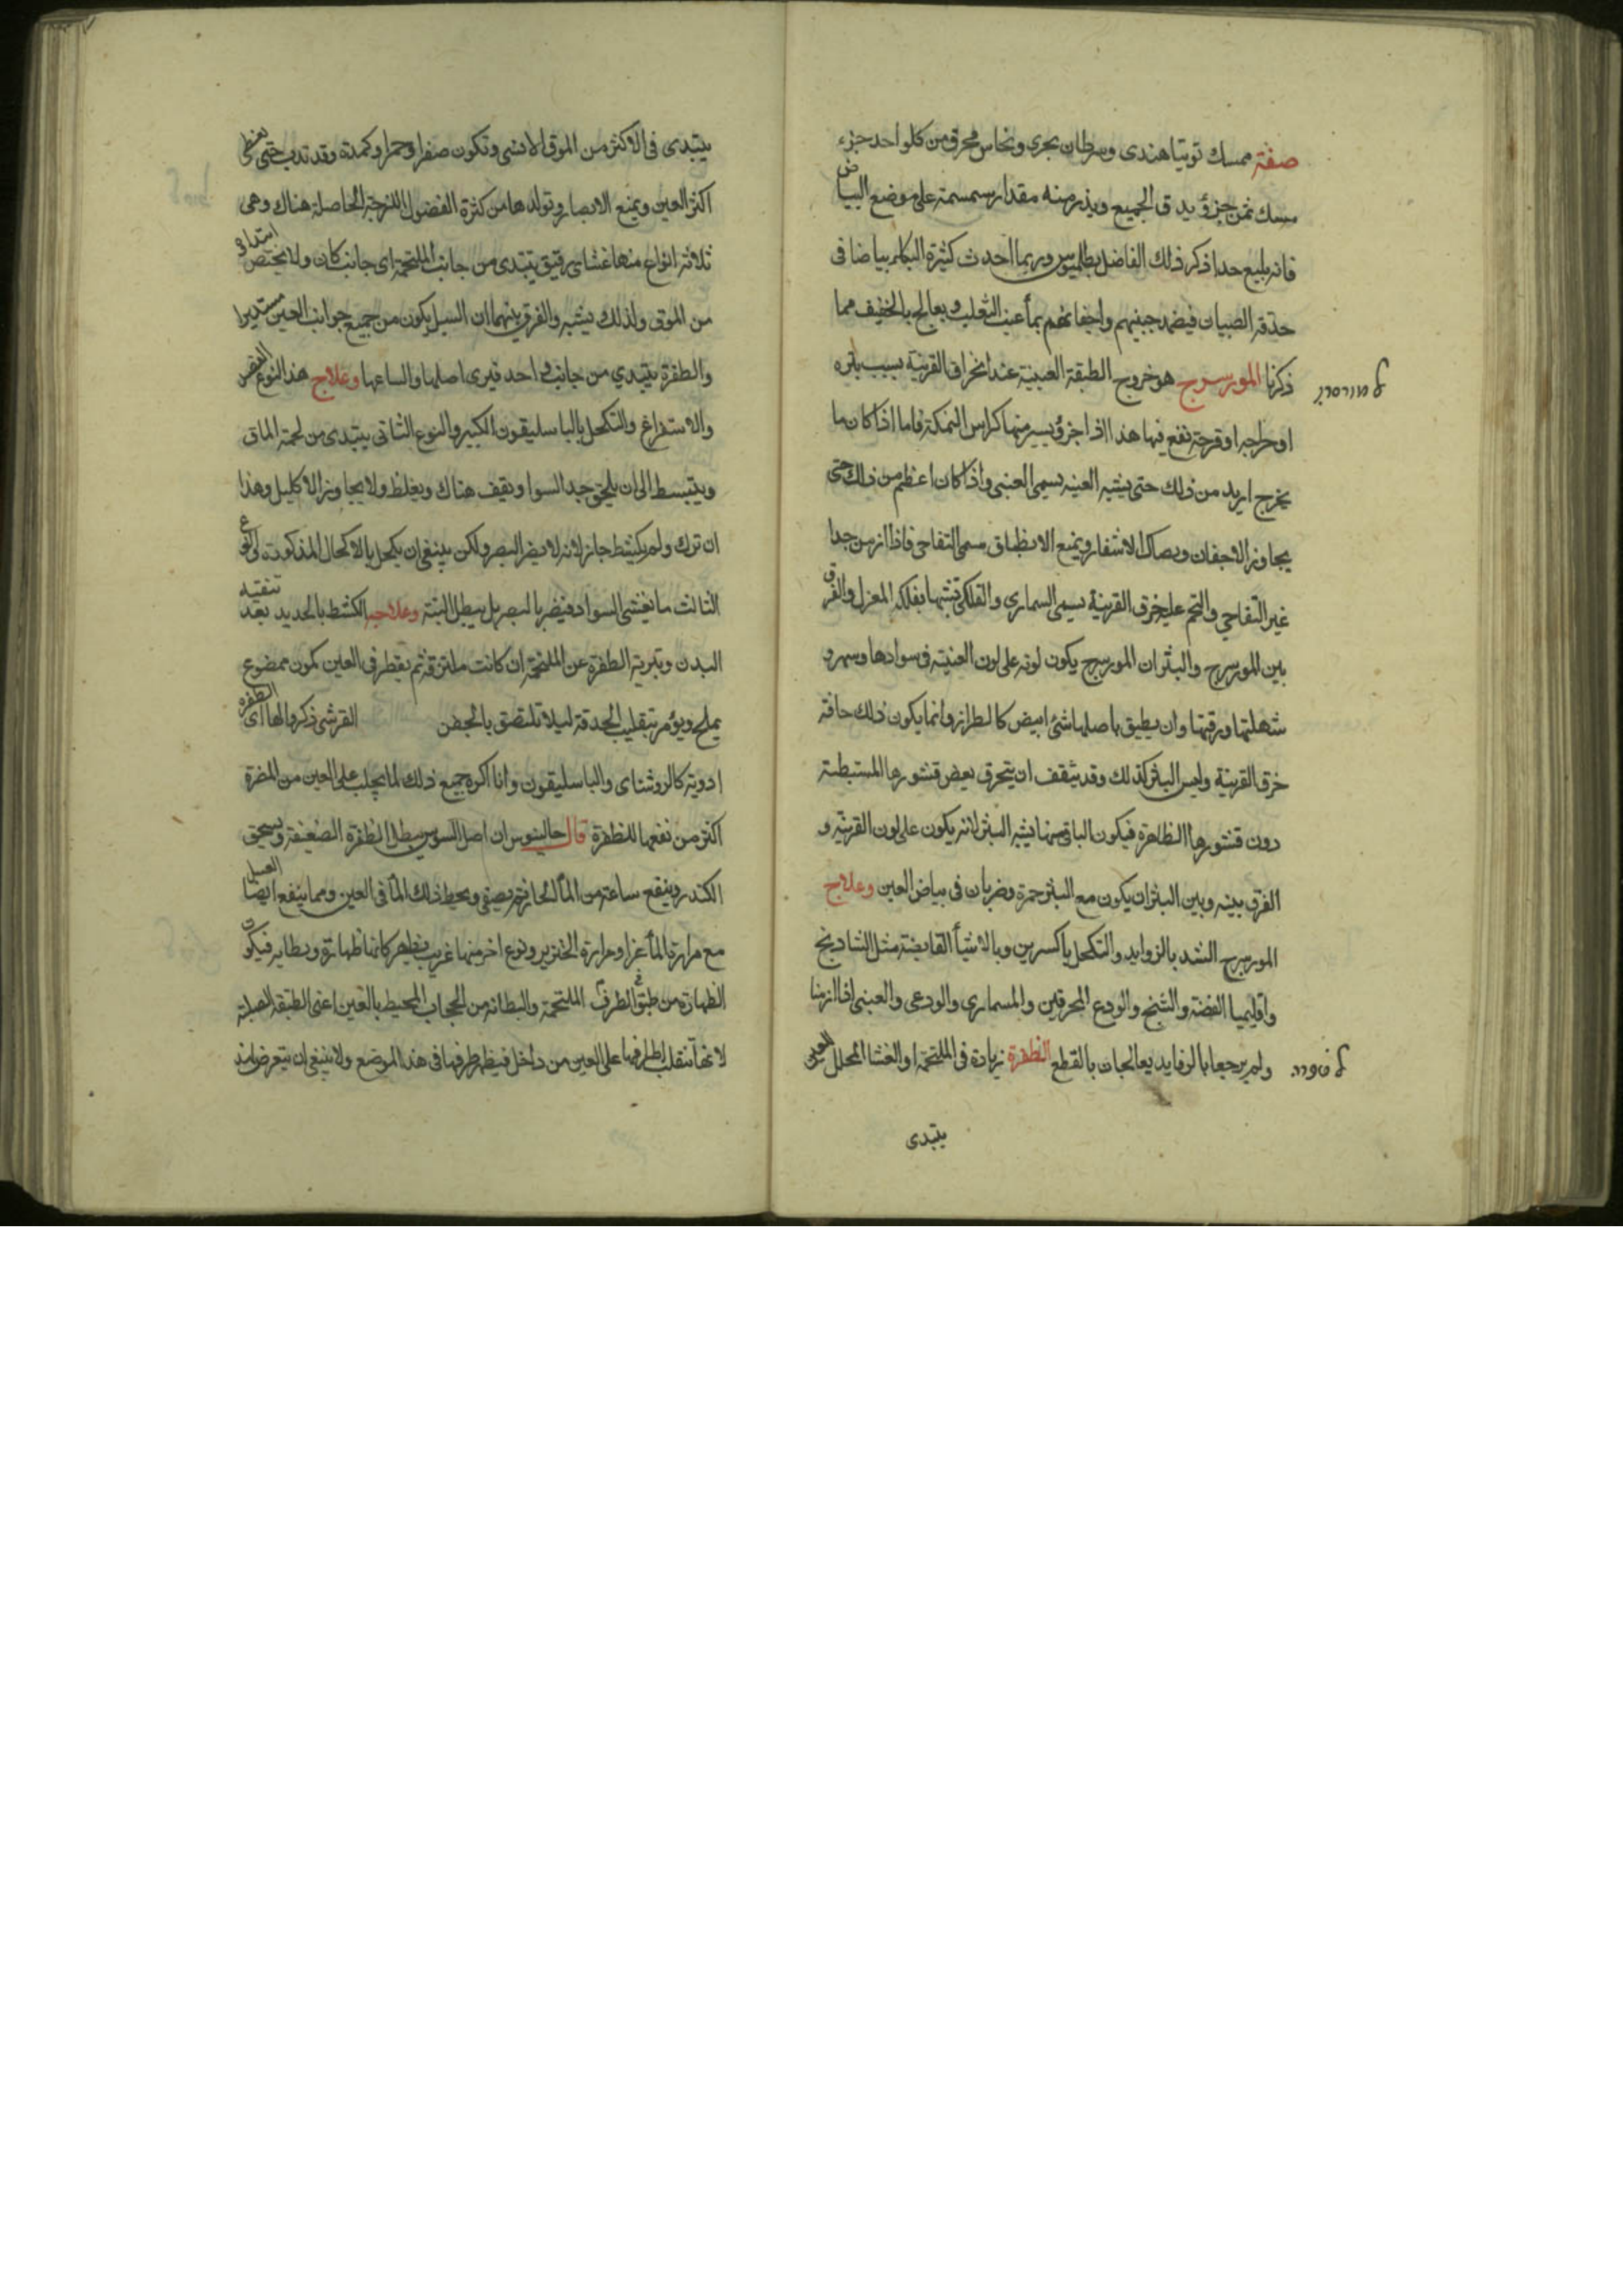 صفة ممسك توتيا هندى وسرطان بحرى ونحاس محرق من كلواحد جزء
مسك ثمن جزؤ يدق الجميع ويذر منه مقدار سمسمة على موضع البياض
فانه بليغ جدا ذكر ذلك الفاضل بطلميوس وربما احدث كثيرة البكاء بياضا فى
حدقة الصبيان فيضمد جبينهم واجفانهم بماء عنب الثعلب ويعالج بالخفيف مما
ذكرنا المورسرج هو خروج الطبقة العنبية عند انخراق القرنية بسبب بثره
او جراحه او قرحة تقع فيها هذا اذا جزؤ يسير منها كراس النمكة فاما اذا كان ما
يخرج ازيد من ذلك حتى يشبه العنبه يسمى العنبى واذا كان اعظم من ذلك حتى
يجاوز الاجفان ويصاك الاشفار ويمنع الانطباق سمى التفاحى فاذا ازمن جدا
غير التفاحي والتحم عليه خرق القرنية يسمى المسماري والفلكى تشبها بفلكه المعزل والفرق
بين المورسرج والبثر ان المورسرج يكون لونه على لون العنبية فى سوادها و
شهلتها وزرقتها وان يطيق باصلها شئ ابيض كالطراز وانما يكون ذلك حافة
خرق القرنية وليس البثر كذلك وقد يتفق ان يتخرق بعض قشورها المستبطنة
دون قشورها الظاهرة فيكون الباقى منها يشبه البثر لانه يكون على لون القرنية و
الفرق بينه وبين البثر ان يكون مع البثر حمرة وضربان فى بياض العين وعلاج
المورسرج الشد بالزوايد والتكحل باكسرين وبالاشيأ القابضة مثل الشادنج
واقليميا الفضة والشنج والودع المحرقين والمسماري والودعى والعنبى اذا ازمنا
ولم يرجعا بالرفايد يعالجان بالقطع الظفرة زيادة فى الملتحمة او الغشا المجلل للعين
يبتدى
يبتدى فى الاكثر من الموق الانسى وتكون صفرا وحمرا وكمدة وقد تدب حتى تغطى
اكثر العين ويمنع الابصار وتولدها من كثرة الفضول اللزجة الحاصلة هناك وهى
ثلاثة انواع منها غشاى رقيق يبتدى من جانب الملتحمة اى جانب كان ولا يختص ابتداؤ
من الموق ولذلك يشبه والفرق بينهما ان السبل يكون من جميع جوانب العين مستديرا
والظفرة يبتدي من جانب احد فيرى اصلها واتساعها وعلاج هذا النوع الفصد
والاستفراغ والتكحل بالباسليقون الكبير والنوع الثانى يبتدى من لحمة الماق
وينبسط الى ان يلحق حد السوا ويقف هناك ويغلظ ولا يجاوز الاكليل وهذا
ان ترك ولم يكشط جاز لانه لا يضر البصر ولكن ينبغى ان يكحل بالاكحال المذكورة
الثالث ما يغشى السواد فيضر بالبصر بل يبطل البتة وعلاجه الكشط بالحديد بعد تنقيه
البدن وتبرية الظفرة عن الملتحمة ان كانت ملتزقة ثم يقطر فى العين كمون ممضوع
بملح ويؤمر بتقليب الحدقة ليلا تلتصق بالجفن القرشى ذكروا لها اى الظفرة
ادوية كالروشناى والباسليقون وانا اكره جميع ذلك لما يجلب على العين من المضرة
اكثر من نفعها للظفرة قال جالينوس ان اصل السوس يبطل الظفرة الضعيفة ويسحق
الكندر وينقع ساعة من المأ الحار ثم يصفى ويحط ذلك المأ فى العين ومما ينفع ايضا العسل
مع مرارة الماغز او مرارة الخنزير ونوع اخر منها غريب يظهر كانما ظهارة وبطاين فيكون
الظهارة من طبق الطرف الملتحمة والبطانه من الحجاب المحيط بالعين اعنى الطبقة الصلبة
لانها تنقلب اطرافها على العين من داخل فيظهر طرفها فى هذا الموضع ولا ينبغى ان يتعرض